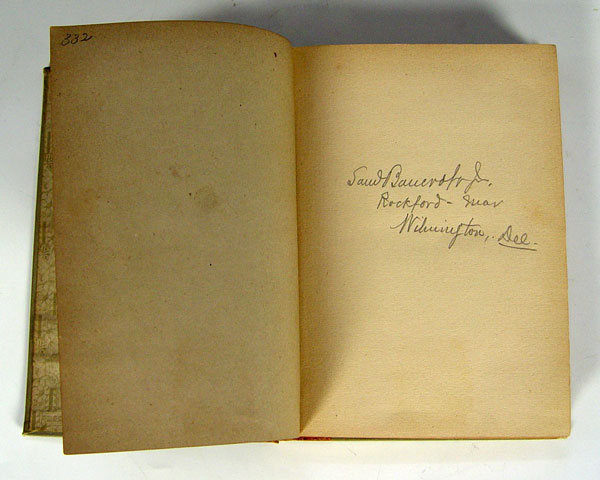 332
Saml Bancroft Jr.
Rockford - near
Wilmington, Del.